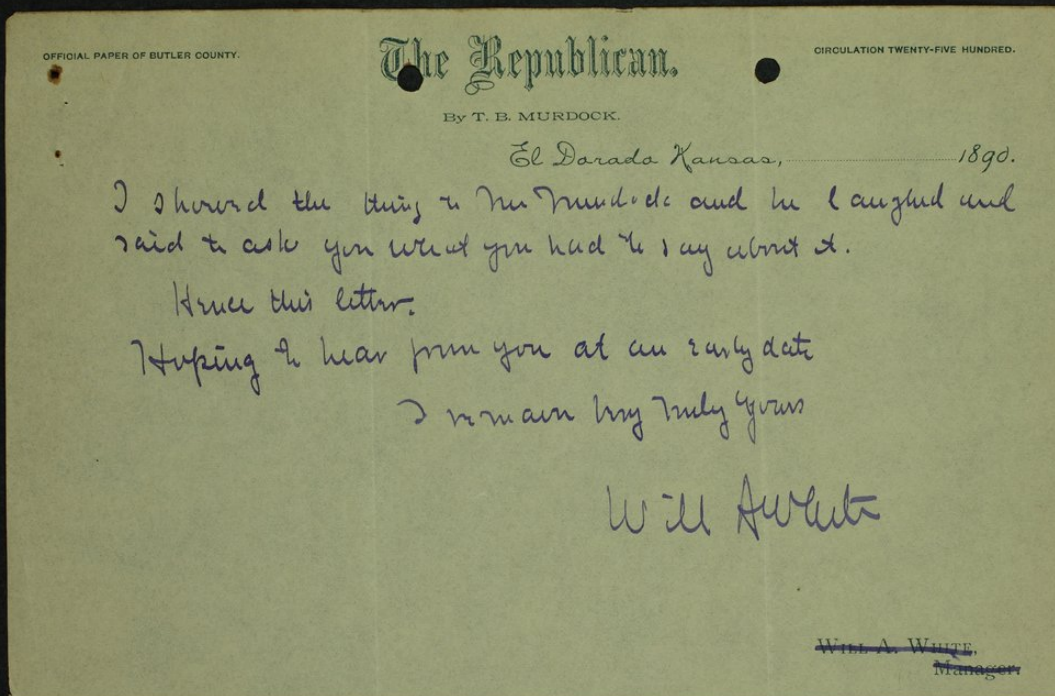 OFFICIAL PAPER OF BUTLER COUNTY.
The Republican.
CIRCULATION TWENTY-FIVE HUNDRED.
By T. B. MURDOCK.
El Dorado Kansas, 1890.
I showed the thing to Mr Murdock and he laughed and
said to ask you what you had to say about it.
Hence this letter.
Hoping to hear from you at an early date
I remain Very Truly Yours
Will A White
WILL A. WHITE,
Manager.